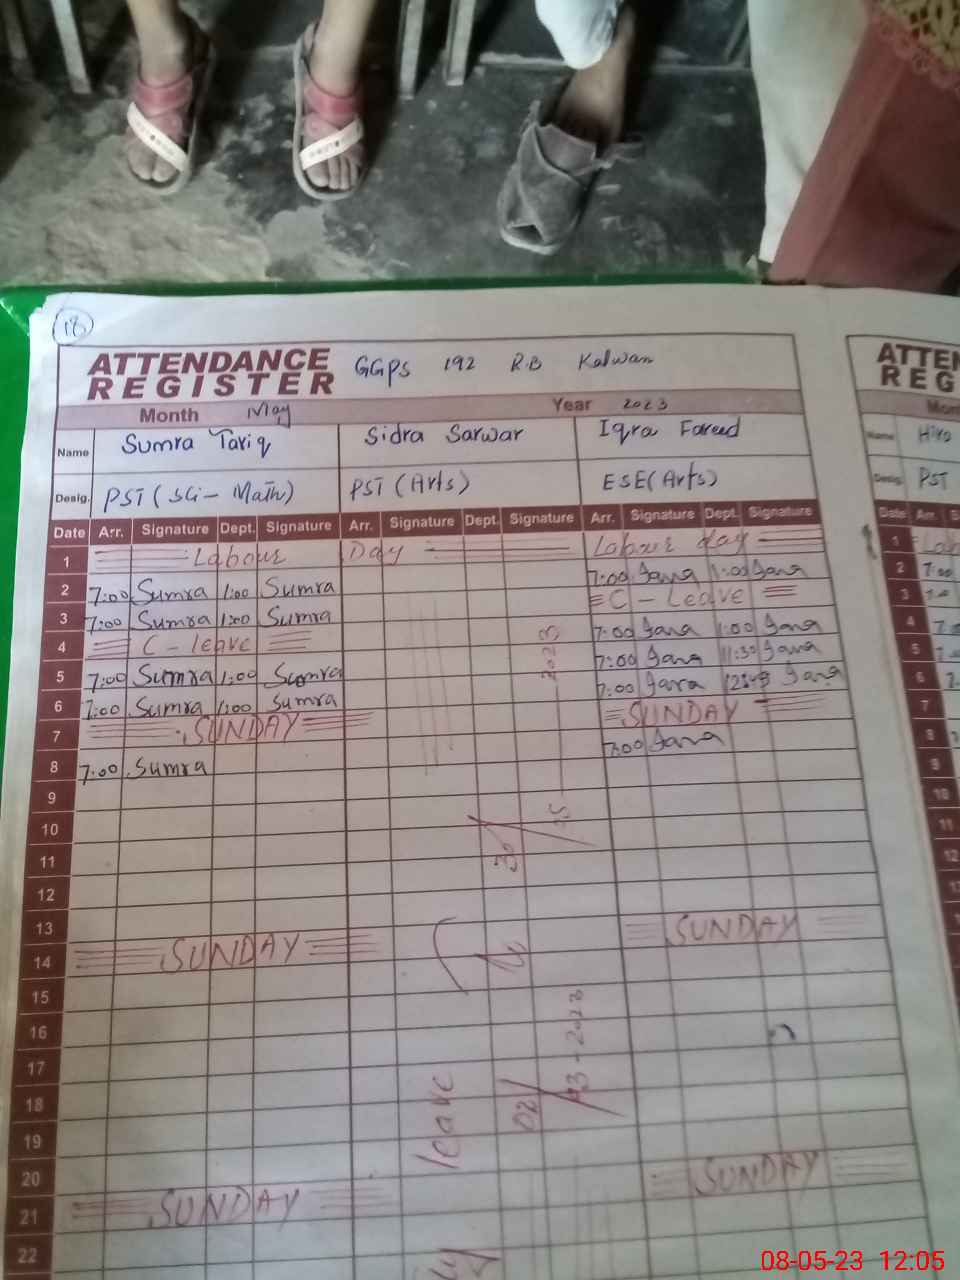 18
ATTENDANCE REGISTER GGPS 192 R.B Kalwan
Month May Year 2023
Name Sumra Tariq Sidra Sarwar Iqra Fareed
Desig. PST (SCi- Math) PST (Arts) ESE (Arts)
Date Arr. Signature Dept. Signature Arr. Signature Dept. Signature Arr. Signature Dept. Signature
1 Labour Day Labour day
2 7:00 Sumra 1:00 Sumra 7:00 1:00
3 7:00 Sumra 1:00 Sumra C - Leave
4 C - leave 7:00 1:00
5 7:00 Sumra 1:00 Sumra 7:00 11:30
6 7:00 Sumra 1:00 Sumra 7:00
7 SUNDAY SUNDAY
8 7:00 Sumra 7:00
9
10
11
12
13
14 SUNDAY SUNDAY
15
16
17
18
19
20
21 SUNDAY SUNDAY
22
leave
02/03-2023
30/
2023
ATTEN
REG
Mont
Name Hira
Desig. PST
Date Arr. S
1 Lab
2 7:00
3
4
5
6
7
8
9
10
11
12
08-05-23 12:05